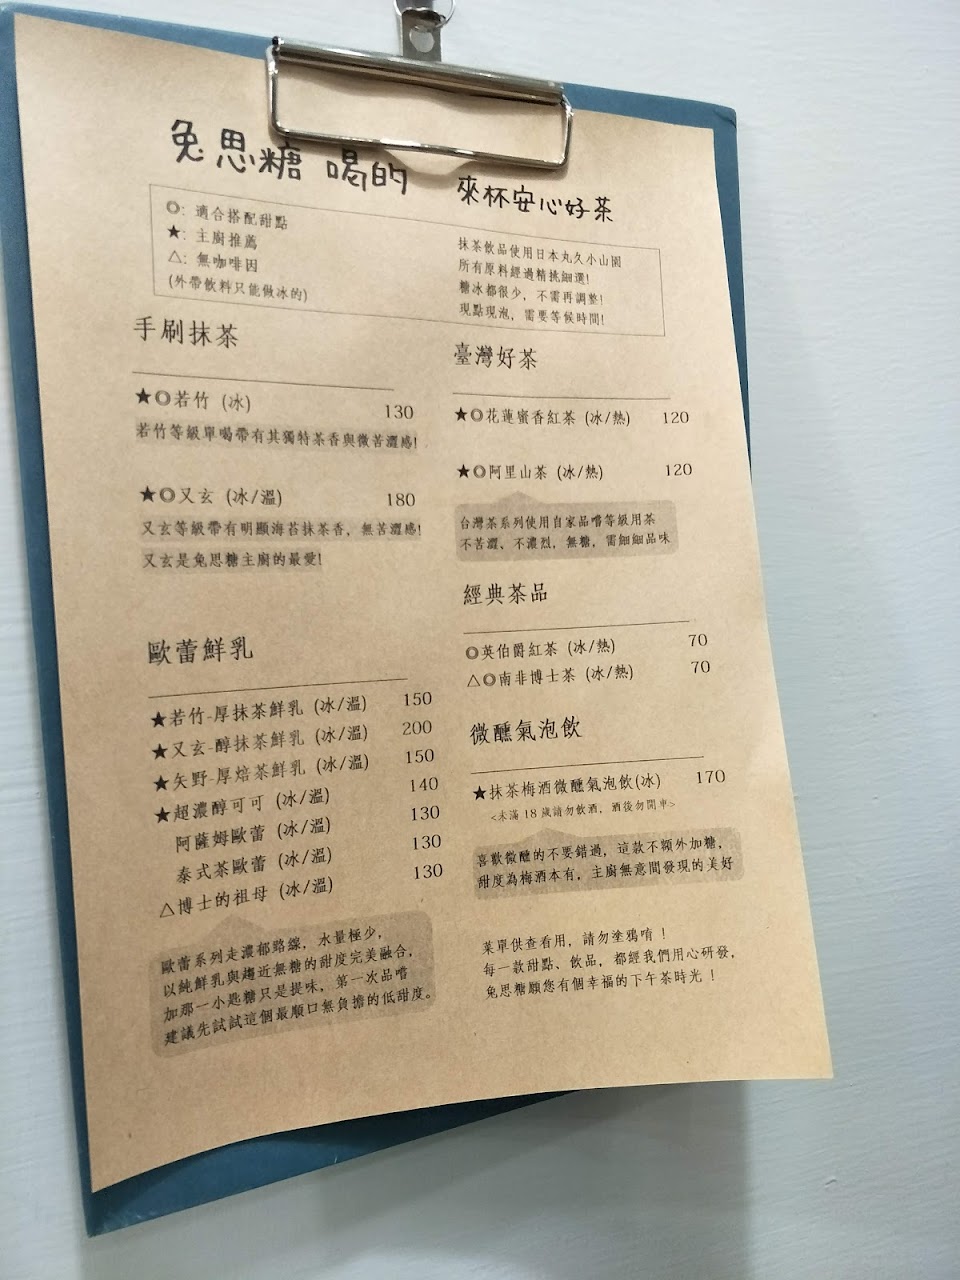 兔思糖 喝的 來杯安心好茶
◎: 適合搭配甜點
★: 主廚推薦
△: 無咖啡因
(外帶飲料只能做冰的)
抹茶飲品使用日本丸久小山園
所有原料經過精挑細選!
糖冰都很少, 不需再調整!
現點現泡, 需要等候時間!
手刷抹茶
★◎若竹 (冰) 130
若竹等級單喝帶有其獨特茶香與微苦澀感!
★◎又玄 (冰/溫) 180
又玄等級帶有明顯海苔抹茶香, 無苦澀感!
又玄是兔思糖主廚的最愛!
歐蕾鮮乳
★若竹-厚抹茶鮮乳 (冰/溫) 150
★又玄-醇抹茶鮮乳 (冰/溫) 200
★矢野-厚焙茶鮮乳 (冰/溫) 150
★超濃醇可可 (冰/溫) 140
阿薩姆歐蕾 (冰/溫) 130
泰式茶歐蕾 (冰/溫) 130
△博士的祖母 (冰/溫) 130
歐蕾系列走濃郁路線, 水量極少,
以純鮮乳與趨近無糖的甜度完美融合,
加那一小匙糖只是提味, 第一次品嚐
建議先試試這個最順口無負擔的低甜度。
臺灣好茶
★◎花蓮蜜香紅茶 (冰/熱) 120
★◎阿里山茶 (冰/熱) 120
台灣茶系列使用自家品嚐等級用茶
不苦澀、不濃烈, 無糖, 需細細品味
經典茶品
◎英伯爵紅茶 (冰/熱) 70
△◎南非博士茶 (冰/熱) 70
微醺氣泡飲
★抹茶梅酒微醺氣泡飲(冰) 170
<未滿 18 歲請勿飲酒, 酒後勿開車>
喜歡微醺的不要錯過, 這款不額外加糖,
甜度為梅酒本有, 主廚無意間發現的美好
菜單供查看用, 請勿塗鴉唷 !
每一款甜點、飲品, 都經我們用心研發,
兔思糖願您有個幸福的下午茶時光 !